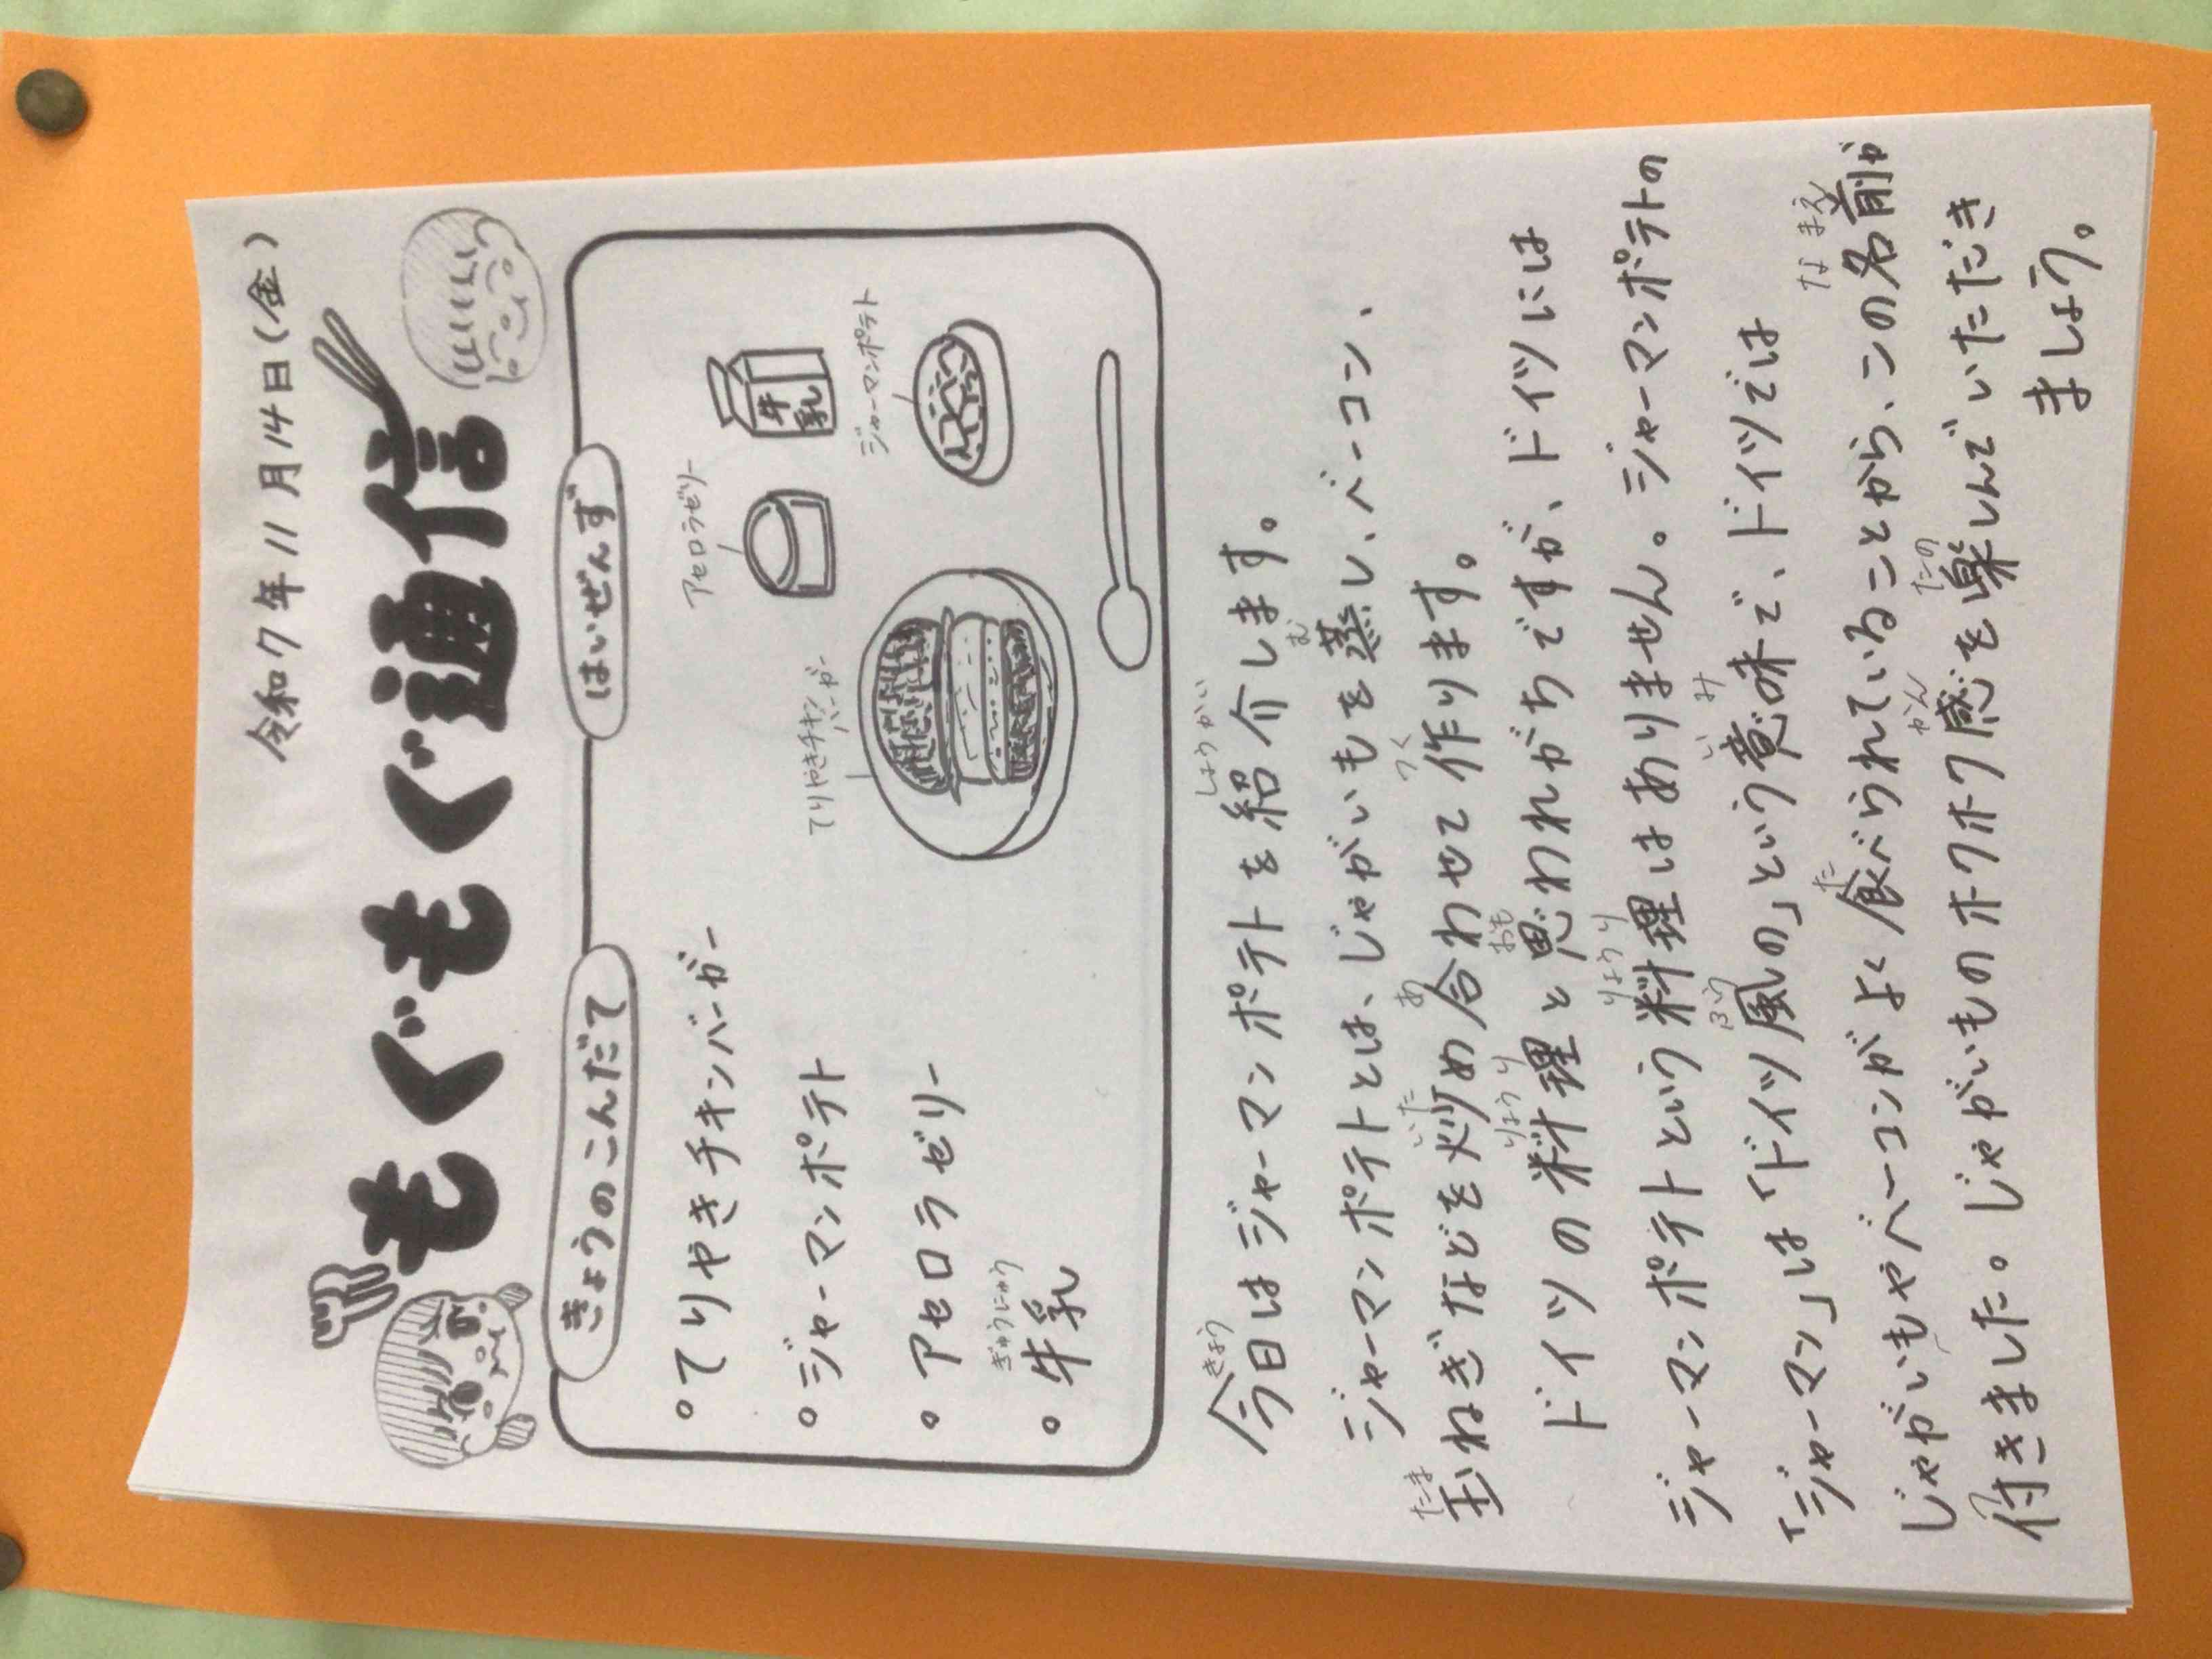 令和7年11月14日(金)
もぐもぐ通信
きょうのこんだて
はいぜんず
。てりやきチキンバーガー
。ジャーマンポテト
。アセロラゼリー
ぎゅうにゅう
。牛乳
アセロラゼリー
牛乳
てりやきチキン
バーガー
ジャーマンポテト
きょう しょうかい
今日はジャーマンポテトを紹介します。
む
ジャーマンポテトとは、じゃがいもを蒸し、ベーコン、
たま いた あ つく
玉ねぎなどを炒め合わせて作ります。
りょうり おも
ドイツの料理と思われがちですが、ドイツには
りょうり
ジャーマンポテトという料理はありません。ジャーマンポテトの
ふう いみ
「ジャーマン」は「ドイツ風の」という意味で、ドイツでは
た なまえ
じゃがいもやベーコンがよく食べられていることから、この名前が
かん たの
付きました。じゃがいものホクホク感を楽しんでいただき
ましょう。